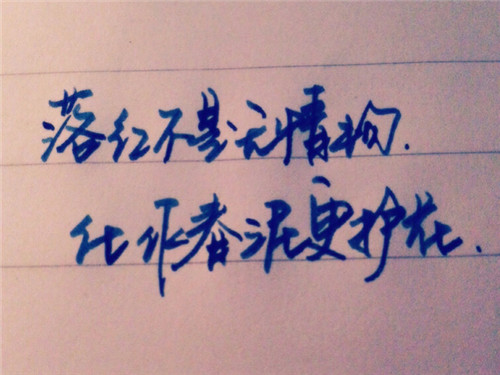 落红不是无情物.
化作春泥更护花.